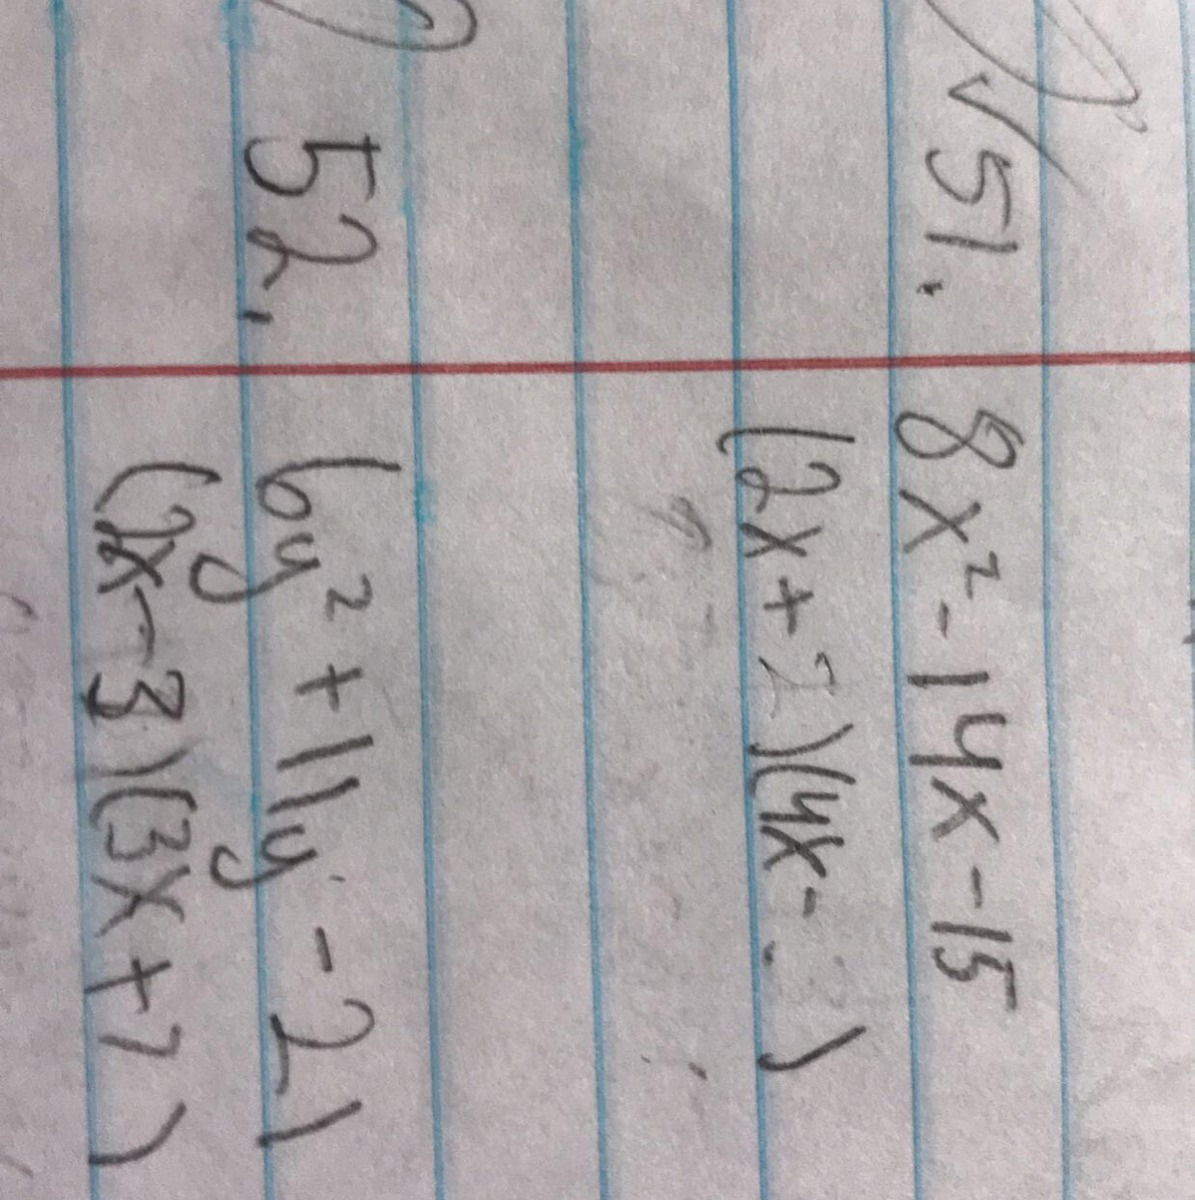 √51. 8x² - 14x - 15
(2x + )(4x - )
52. 6y² + 11y - 21
(2y - 3)(3y + 7)